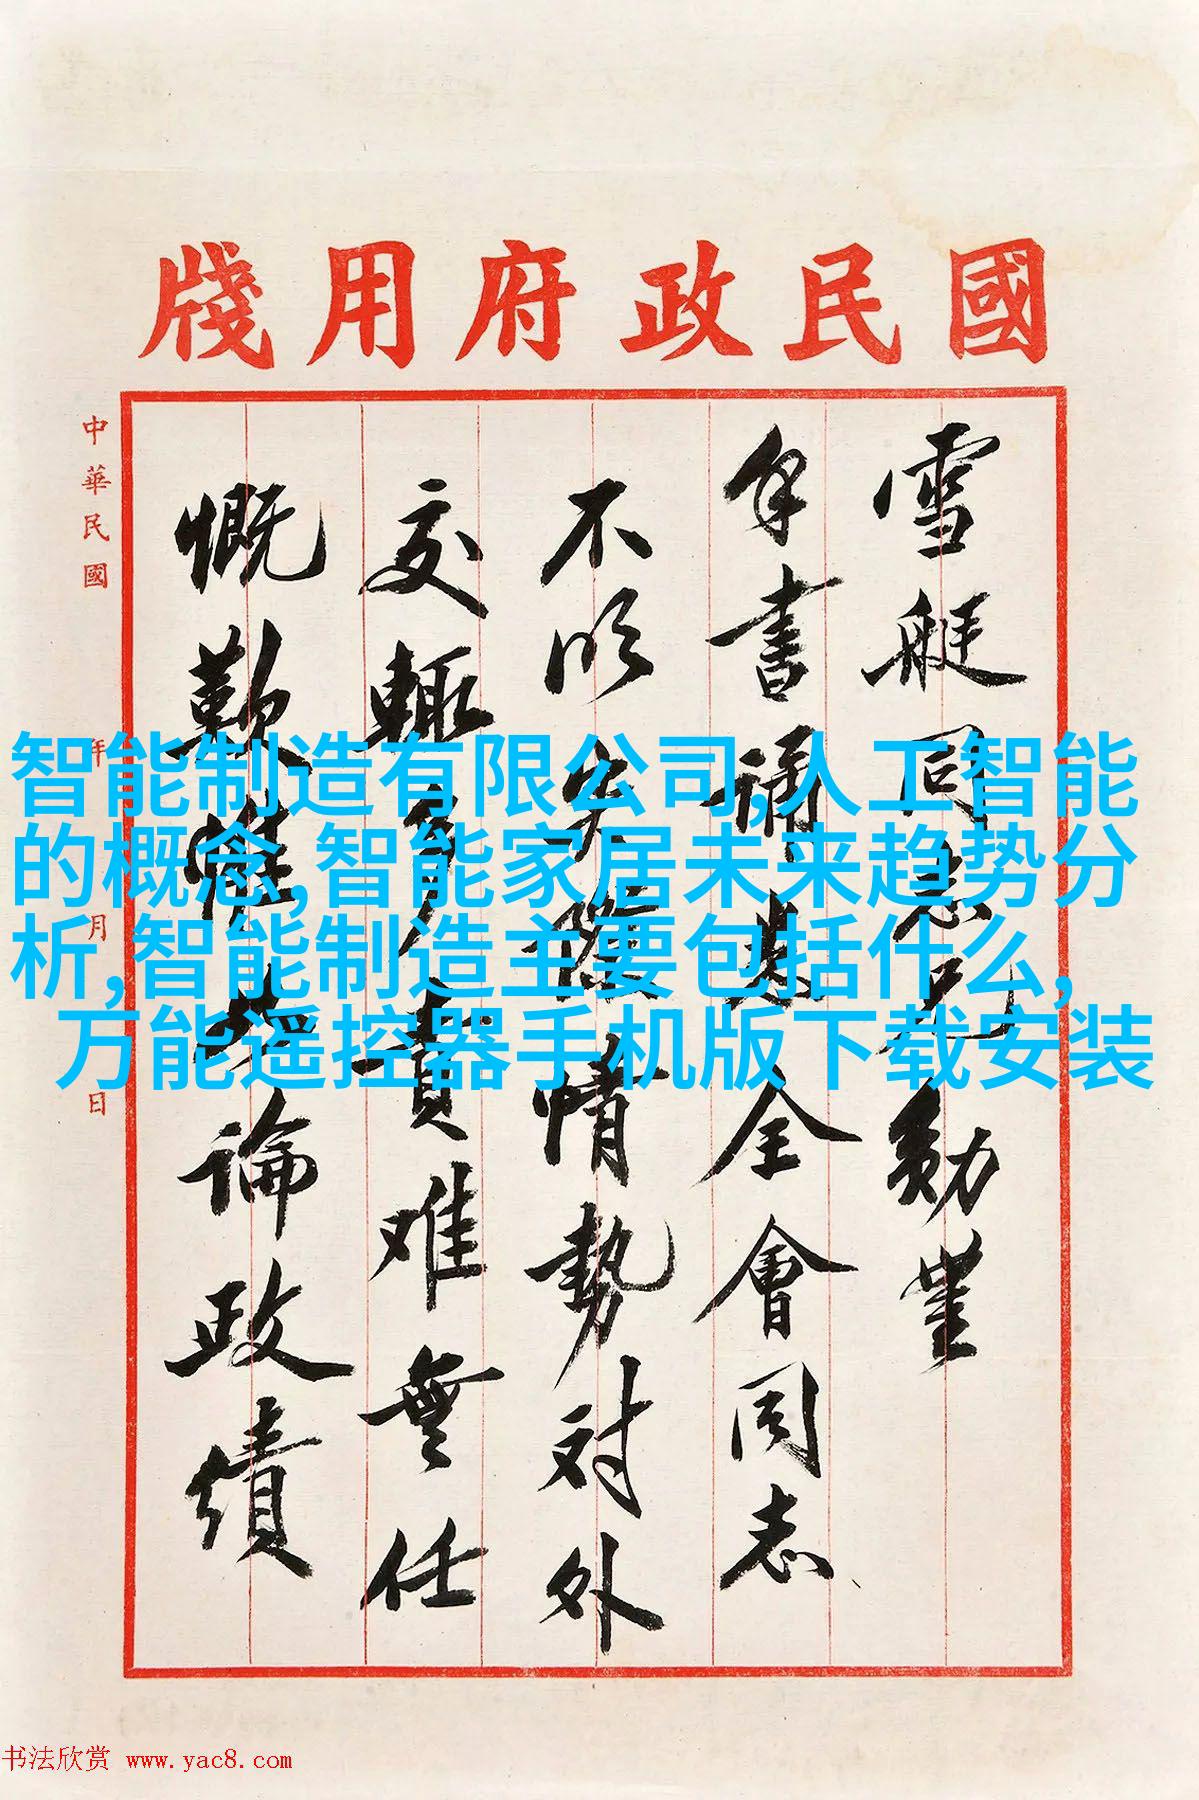 國民政府用牋
雪艇同志兄勛鑒
手書誦悉全會同志
不明實際情勢對外
交輒多責難無任
慨歎惟 論政績
中華民國 年 月 日
智能制造有限公司,人工智能
的概念,智能家居未来趋势分
析,智能制造主要包括什么,
万能遥控器手机版下载安装
书法欣赏 www.yac8.com